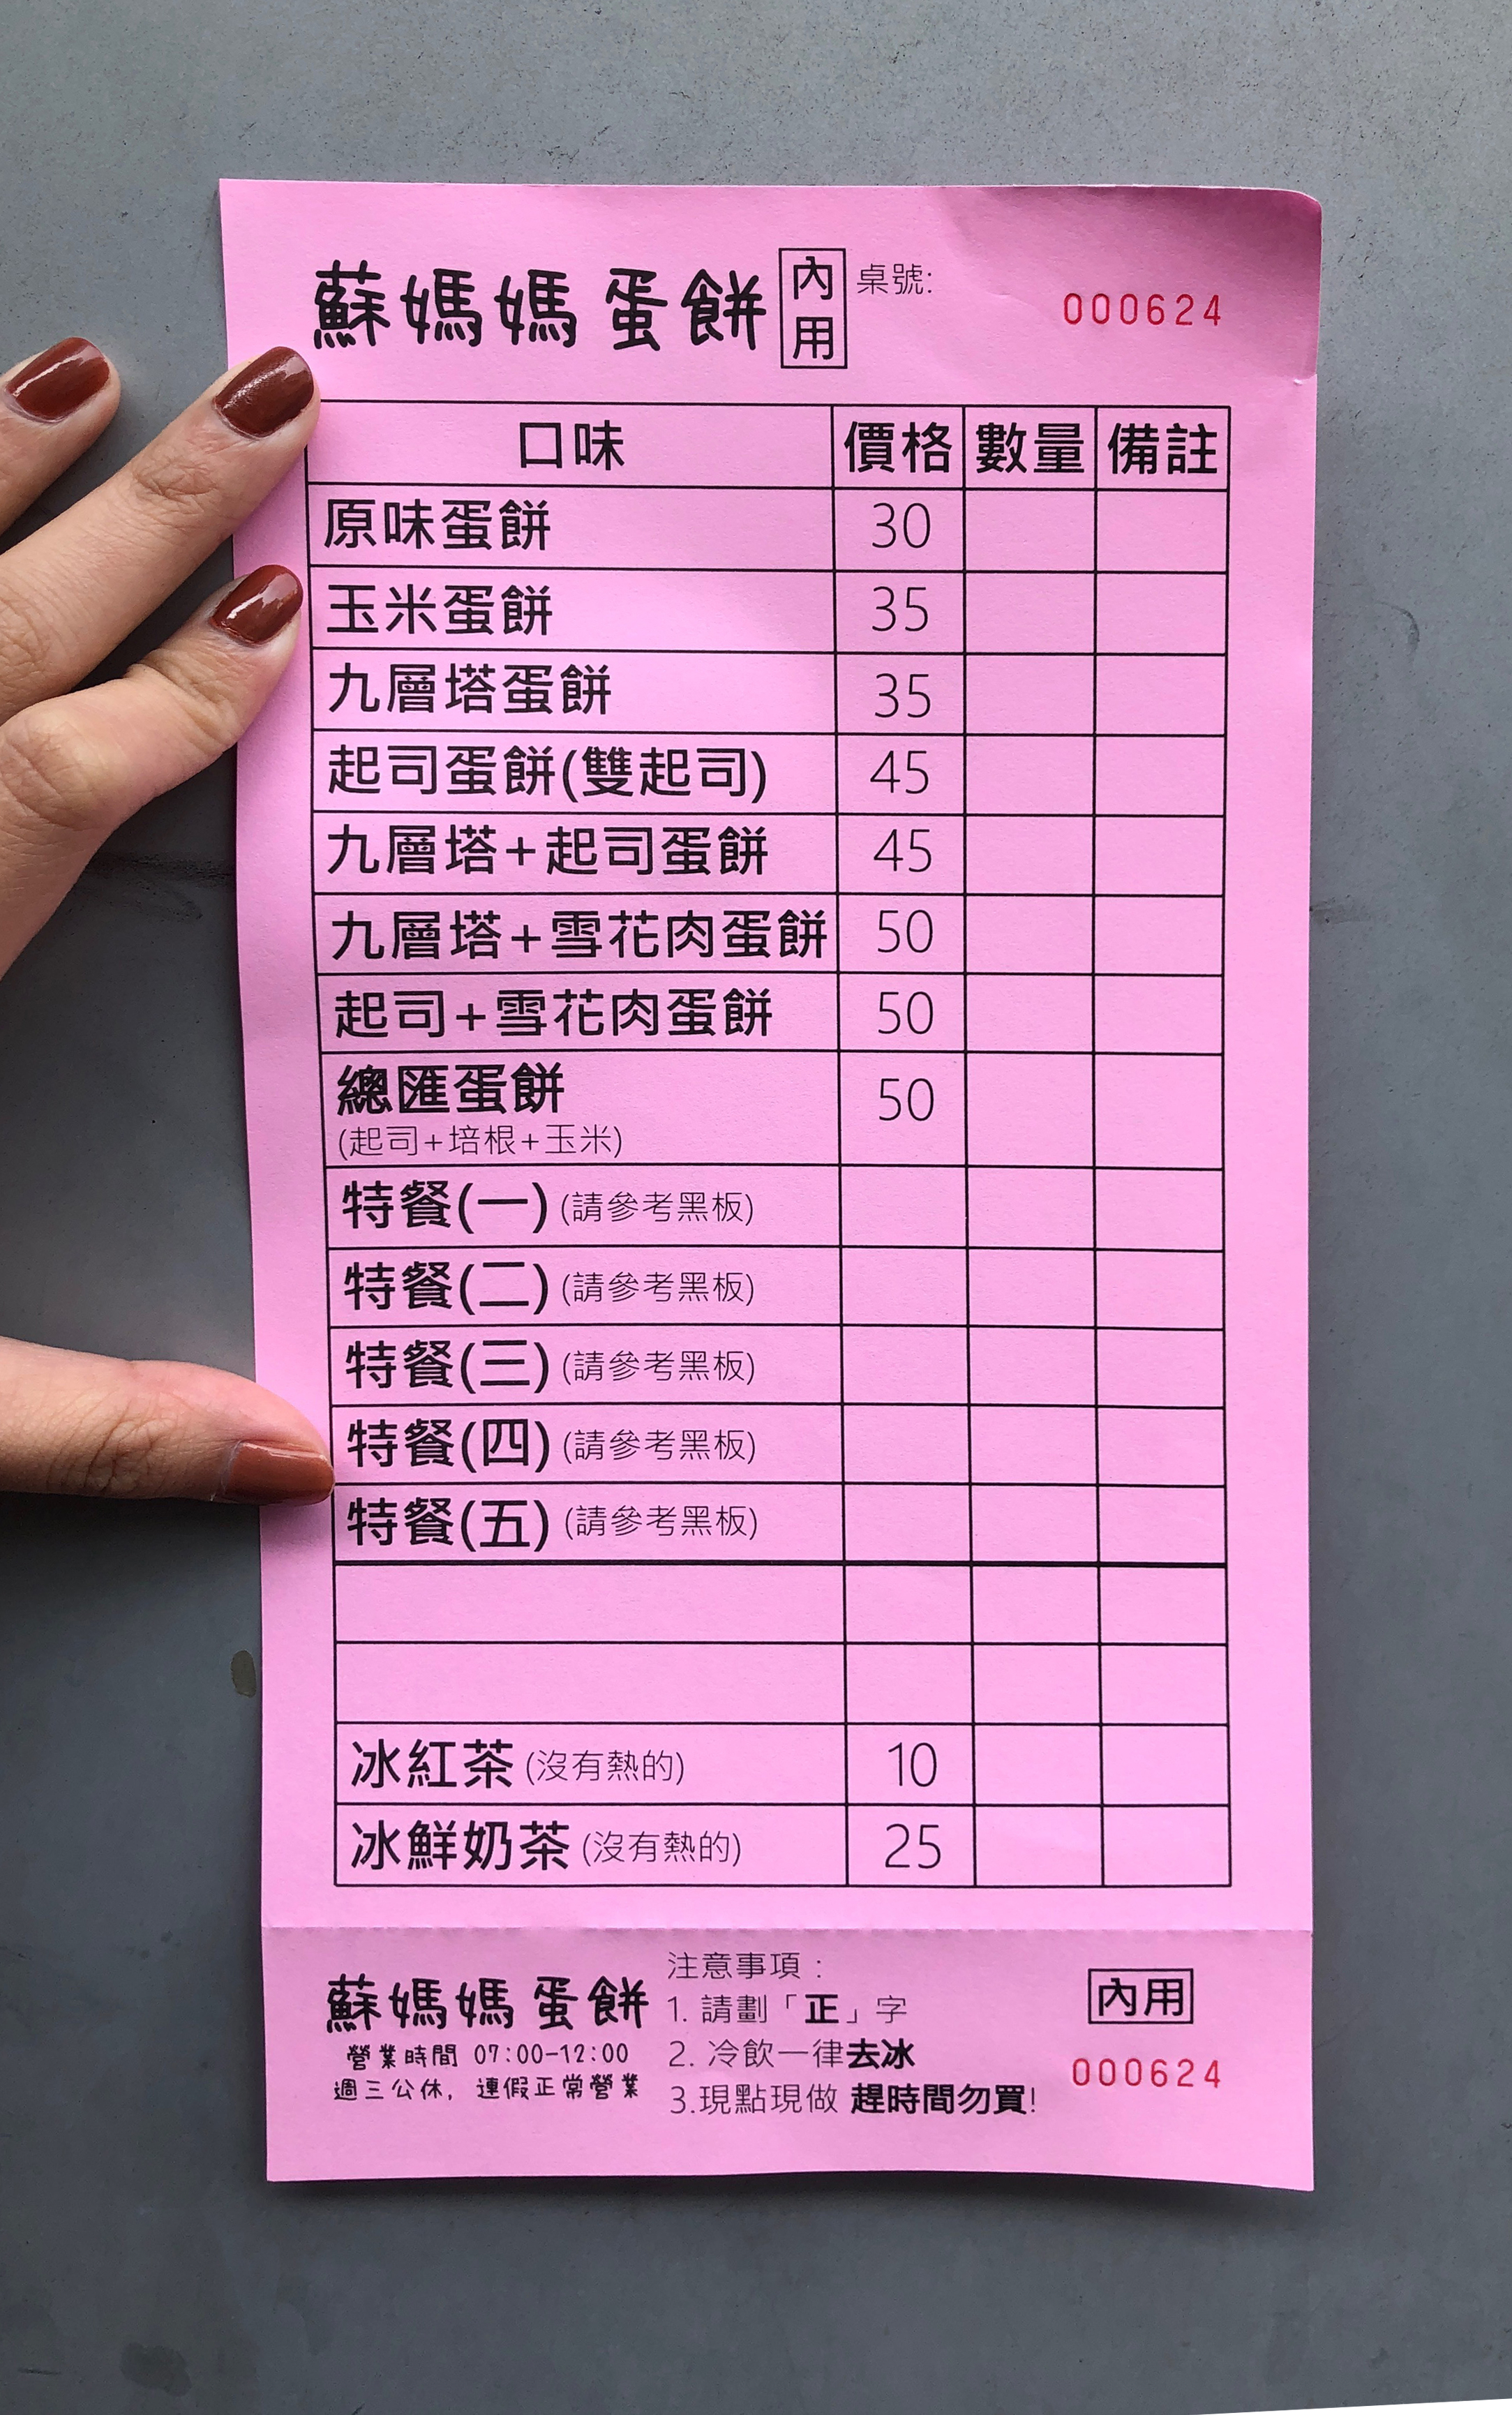 蘇媽媽 蛋餅 內用 桌號: 000624
口味 價格 數量 備註
原味蛋餅 30
玉米蛋餅 35
九層塔蛋餅 35
起司蛋餅(雙起司) 45
九層塔+起司蛋餅 45
九層塔+雪花肉蛋餅 50
起司+雪花肉蛋餅 50
總匯蛋餅 50
(起司+培根+玉米)
特餐(一) (請參考黑板)
特餐(二) (請參考黑板)
特餐(三) (請參考黑板)
特餐(四) (請參考黑板)
特餐(五) (請參考黑板)
冰紅茶 (沒有熱的) 10
冰鮮奶茶 (沒有熱的) 25
蘇媽媽 蛋餅
營業時間 07:00-12:00
週三公休, 連假正常營業
注意事項:
1. 請劃「正」字
2. 冷飲一律去冰
3.現點現做 趕時間勿買!
內用
000624